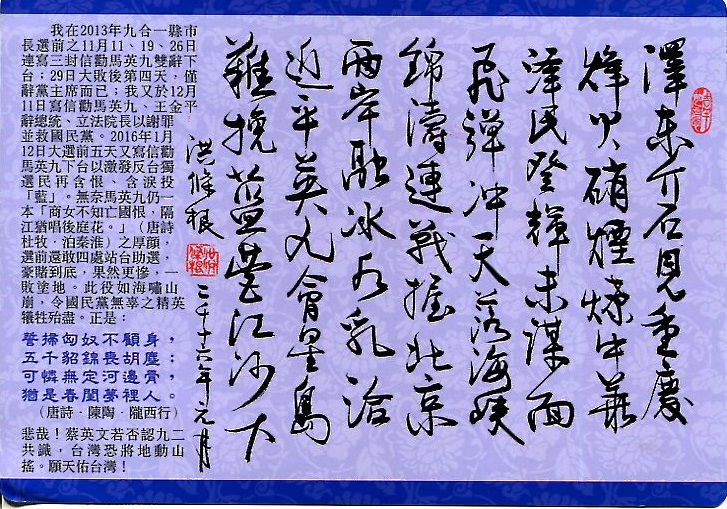 澤東介石見重慶
烽火硝煙煉中華
澤民登輝未謀面
飛彈沖天落海峽
錦濤連戰握北京
兩岸融冰水乳洽
近平英九會星島
難挽藍營江沙下
洪條根
二千十六年元月
我在2013年九合一縣市
長選前之11月11、19、26日
連寫三封信勸馬英九雙辭下
台；29日大敗後第四天，僅
辭黨主席而已；我又於12月
11日寫信勸馬英九、王金平
辭總統、立法院長以謝罪
並救國民黨。2016年1月
12日大選前五天又寫信勸
馬英九下台以激發反台獨
選民再含恨、含淚投
「藍」。無奈馬英九仍一
本「商女不知亡國恨，隔
江猶唱後庭花。」（唐詩
杜牧．泊秦淮）之厚顏，
選前還敢四處站台助選，
豪賭到底，果然更慘，一
敗塗地。此役如海嘯山
崩，令國民黨無辜之精英
犧牲殆盡。正是：
誓掃匈奴不顧身，
五千貂錦喪胡塵；
可憐無定河邊骨，
猶是春閨夢裡人。
（唐詩．陳陶．隴西行）
悲哉！蔡英文若否認九二
共識，台灣恐將地動山
搖。願天佑台灣！